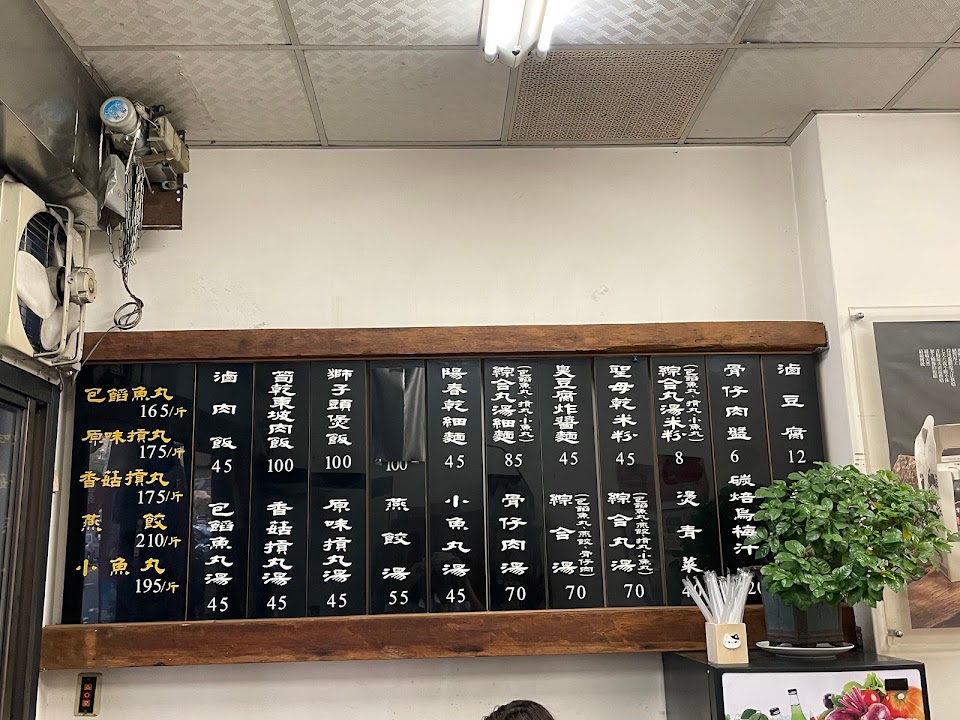 包餡魚丸
165/斤
原味摃丸
175/斤
香菇摃丸
175/斤
燕餃
210/斤
小魚丸
195/斤
滷肉飯
45
包餡魚丸湯
45
筍乾東坡肉飯
100
香菇摃丸湯
45
獅子頭煲飯
100
原味摃丸湯
45
100
燕餃湯
55
陽春乾細麵
45
小魚丸湯
45
綜合丸湯細麵
(包餡魚丸、摃丸、小魚丸)
85
骨仔肉湯
70
臭豆腐炸醬麵
45
綜合湯
(包餡魚丸、燕餃、骨仔肉)
70
聖母乾米粉
45
綜合丸湯
(包餡魚丸、燕餃、摃丸、小魚丸)
70
綜合丸湯米粉
(包餡魚丸、摃丸、小魚丸)
8
燙青菜
骨仔肉盤
6
碳焙烏梅汁
滷豆腐
12